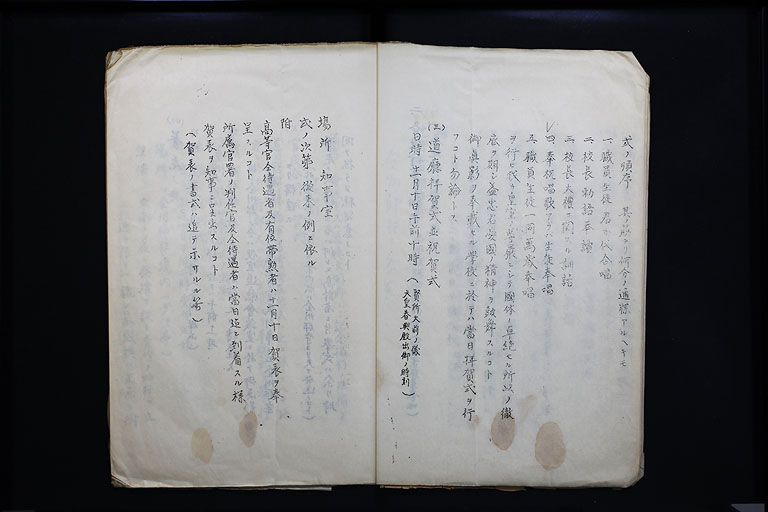 式ノ順序 其ノ府々ニ何分ノ通牒アルヘキモ
一、職員生徒 君ガ代合唱
二、校長 勅語奉讀
三、校長 大禮ニ関スル訓話
四、奉祝唱歌アラバ生徒奉唱
五、職員生徒一同萬歳奉唱
ヲ行ヒ以テ皇室ノ尊厳ニシテ國体ノ卓絶セル所以ノ徹
底ヲ期シ益忠君愛國ノ精神ヲ鼓舞スルコト
御真影ヲ奉戴セル學校ニ於テハ當日拝賀式ヲ行
フコト勿論トス
(三)道廳拝賀式並祝賀式
日時 十一月十日午前十時(賢所大前ノ儀
天皇春興殿出御ノ時刻)
場所 知事室
式ノ次第ハ従来ノ例ニ依ル
附
高等官仝待遇者及有位帯勲者ハ十一月十日賀表ヲ奉
呈スルコト
所属官署ノ判任官及仝待遇者ハ當日迄ニ到着スル様
賀表ヲ知事ニ呈出スルコト
(賀表ノ書式ハ追テ示サルル筈)